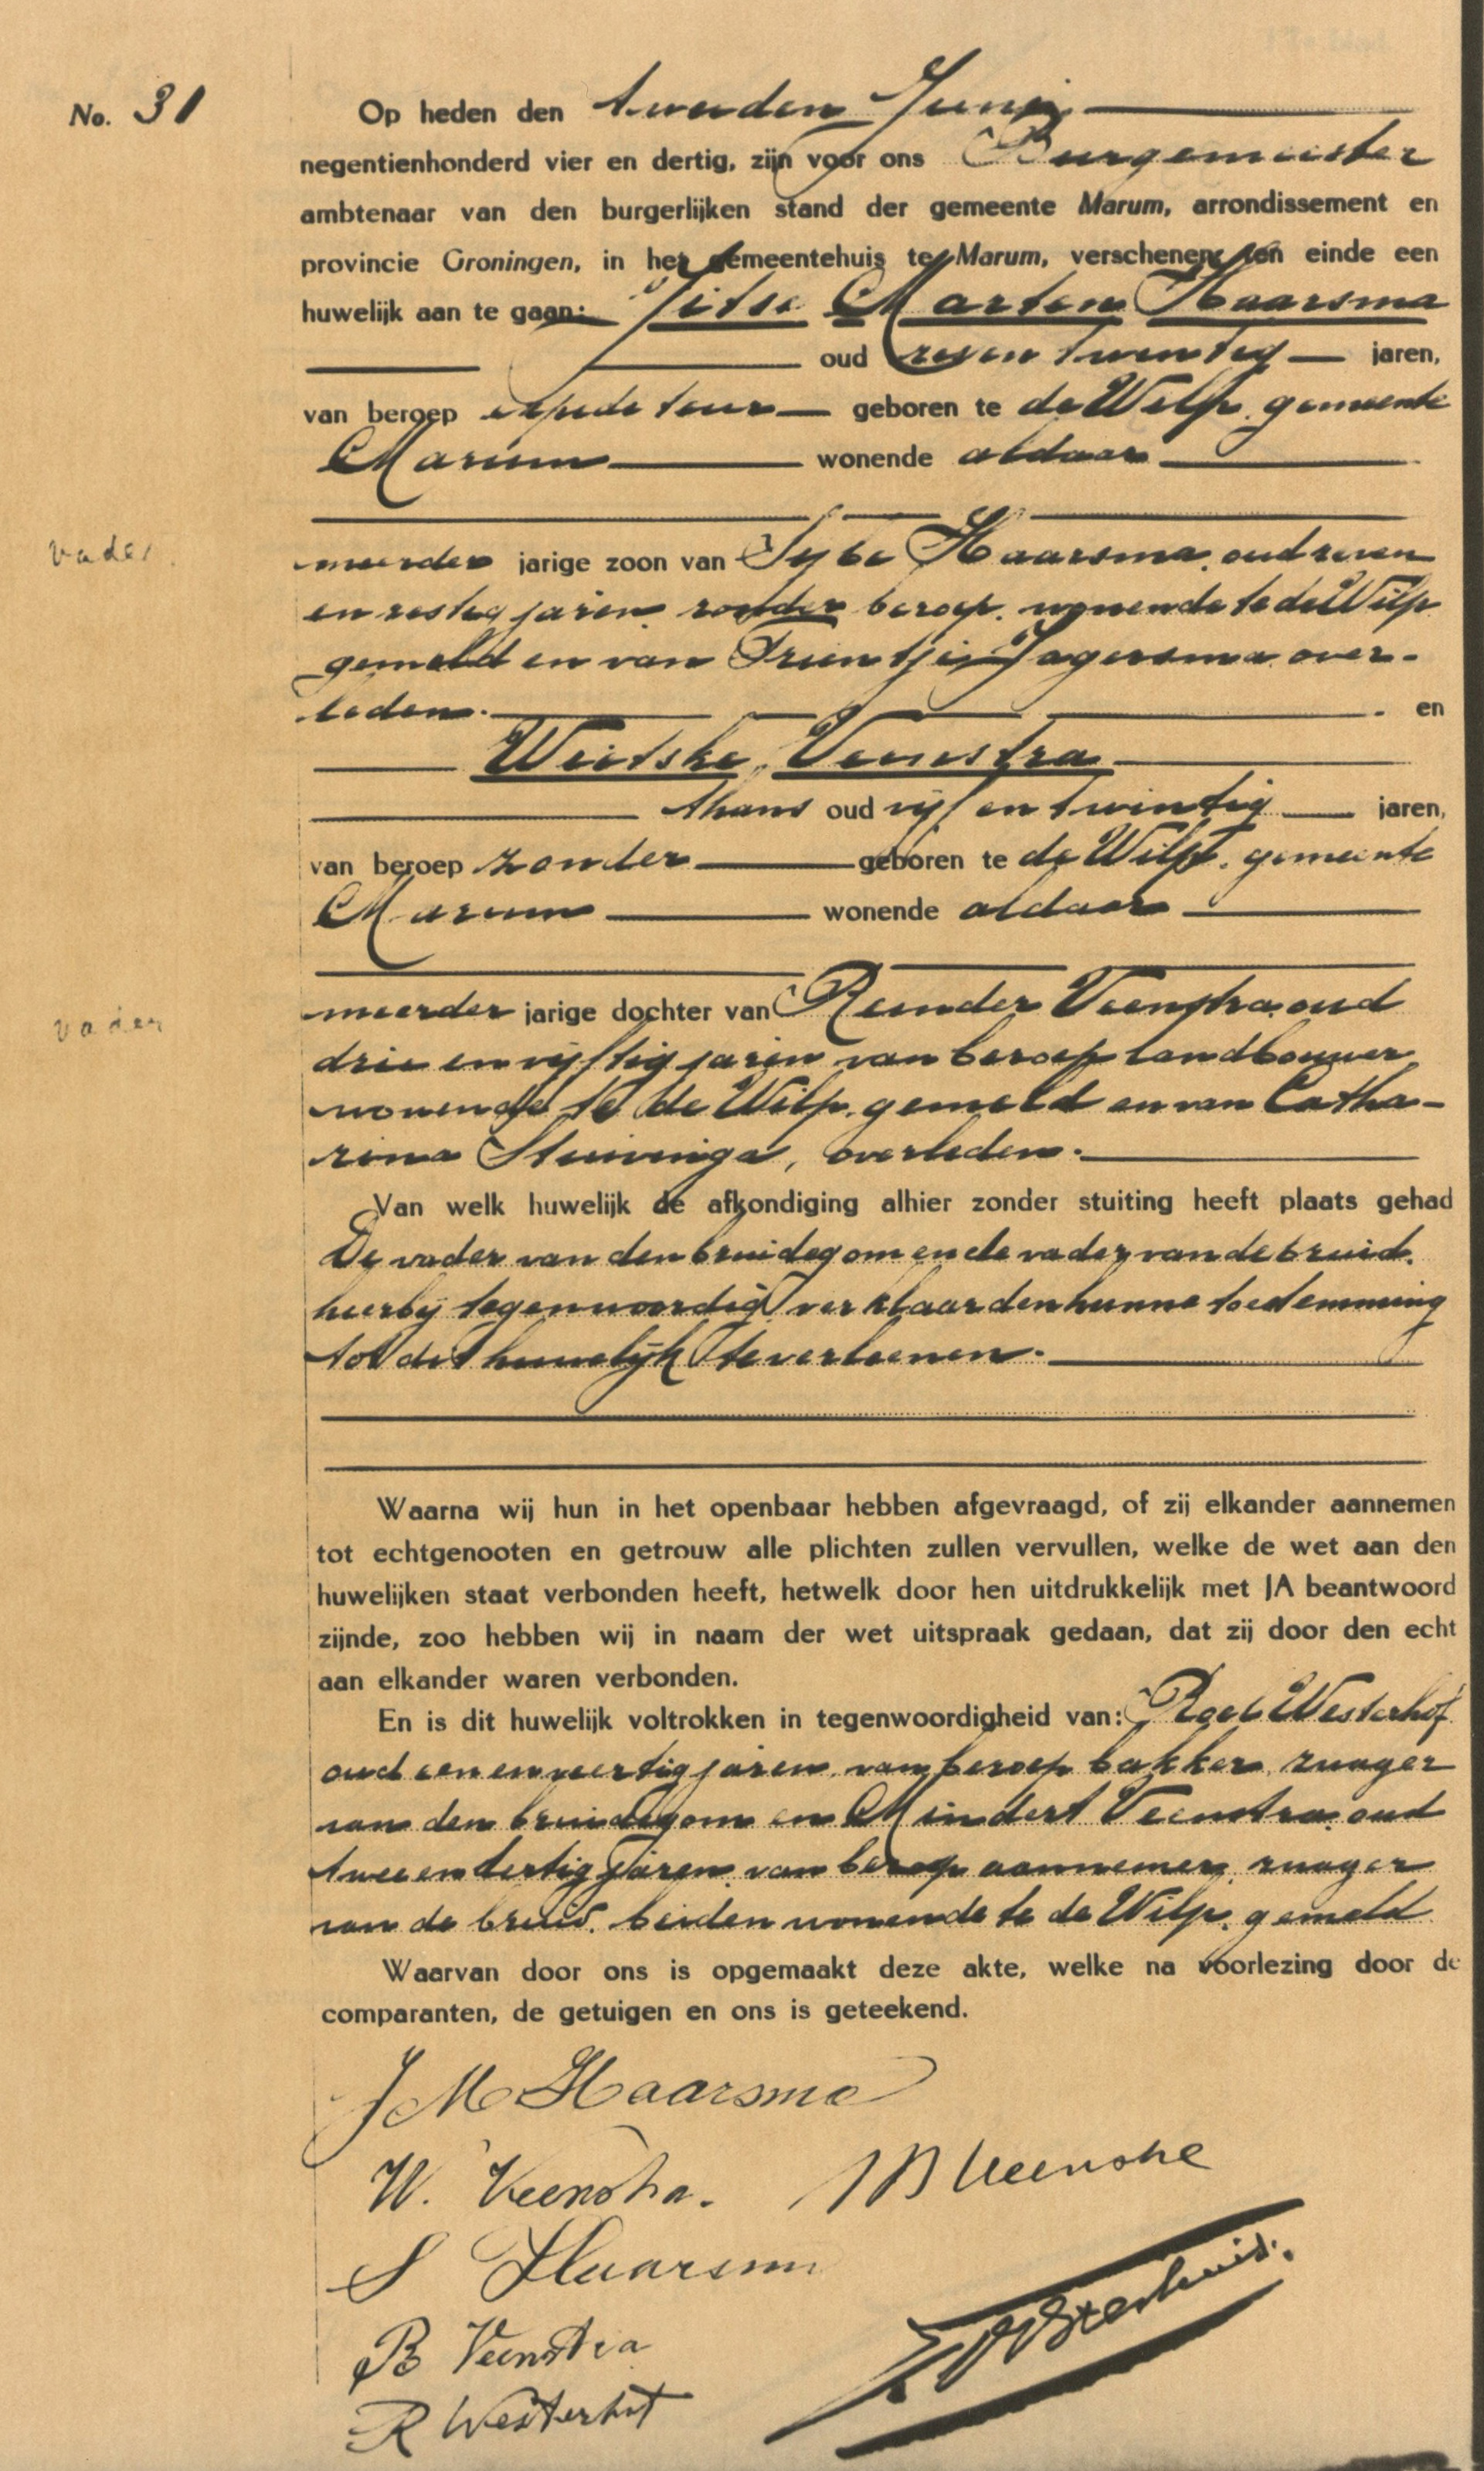 No. 31
Op heden den tweeden Juni
negentienhonderd vier en dertig, zijn voor ons Burgemeester
ambtenaar van den burgerlijken stand der gemeente Marum, arrondissement en
provincie Groningen, in het gemeentehuis te Marum, verschenen ten einde een
huwelijk aan te gaan: Jitse Marten Haarsma
oud zes en twintig jaren,
van beroep expediteur geboren te de Wilp, gemeente
Marum wonende aldaar
vader.
meerder jarige zoon van Sybe Haarsma, oud zeven
en zestig jaren, zonder beroep, wonende te de Wilp
gemeld en van Trientje Jagersma, over-
leden. en
Wietske Veenstra
thans oud vijf en twintig jaren,
van beroep zonder geboren te de Wilp, gemeente
Marum wonende aldaar
vader
meerder jarige dochter van Reinder Veenstra, oud
drie en vijftig jaren van beroep landbouwer
wonende te de Wilp, gemeld en van Catha-
rina Steuvinga, overleden.
Van welk huwelijk de afkondiging alhier zonder stuiting heeft plaats gehad
De vader van den bruidegom en de vader van de bruid,
hierbij tegenwoordig, verklaarden hunne toestemming
tot dit huwelijk te verleenen.
Waarna wij hun in het openbaar hebben afgevraagd, of zij elkander aannemen
tot echtgenooten en getrouw alle plichten zullen vervullen, welke de wet aan den
huwelijken staat verbonden heeft, hetwelk door hen uitdrukkelijk met JA beantwoord
zijnde, zoo hebben wij in naam der wet uitspraak gedaan, dat zij door den echt
aan elkander waren verbonden.
En is dit huwelijk voltrokken in tegenwoordigheid van: Roel Westerhof
oud een en veertig jaren, van beroep bakker, zwager
van den bruidegom en Mindert Veenstra, oud
twee en dertig jaren, van beroep aannemer, zwager
van de bruid, beiden wonende te de Wilp, gemeld
Waarvan door ons is opgemaakt deze akte, welke na voorlezing door de
comparanten, de getuigen en ons is geteekend.
J M Haarsma
W. Veenstra. M Veenstra
S Haarsma
R Veenstra
R Westerhof